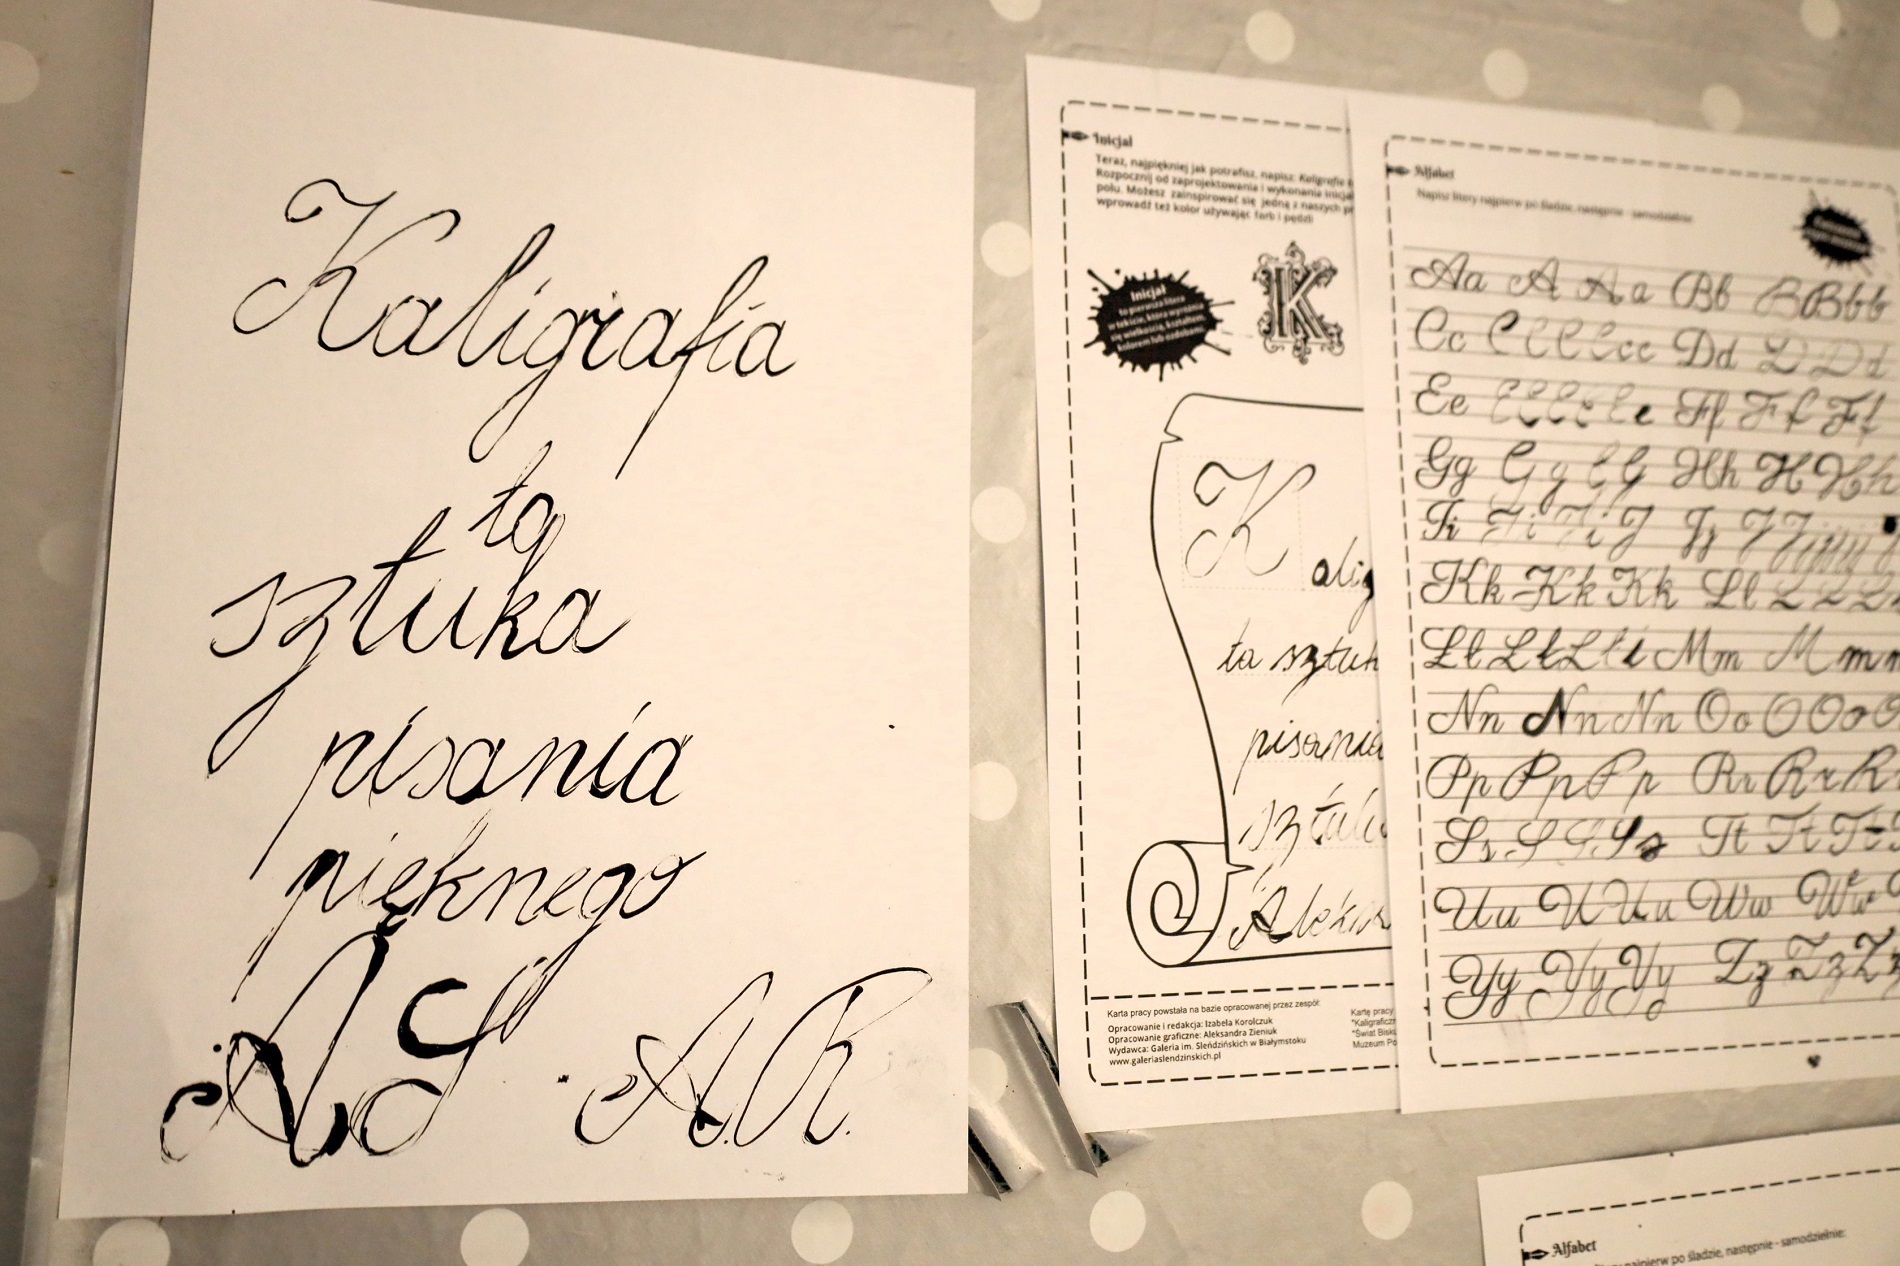 Kaligrafia
to
sztuka
pisania
pięknego
AS A.R.
Inicjał
Teraz, najpiękniej jak potrafisz, napisz: Kaligrafia
Rozpocznij od zaprojektowania i wykonania inicja
polu. Możesz zainspirować się jedną z naszych pr
wprowadź też kolor używając farb i pędzli
Inicjał
to pierwsza litera
w tekście, która wyróżnia
się wielkością, krojem,
kolorem lub ozdobami.
K
K alig
to sztuk
pisania
Karta pracy powstała na bazie opracowanej przez zespół:
Opracowanie i redakcja: Izabela Korolczuk
Opracowanie graficzne: Aleksandra Zieniuk
Wydawca: Galeria im. Sleńdzińskich w Białymstoku
www.galeriaslendzinskich.pl
Kartę pracy
"Kaligraficzn
"Świat Bisku
Muzeum Po
Alfabet
Napisz litery najpierw po śladzie, następnie - samodzielnie:
Aa A A a Bb B B b b
Cc C C C C c c Dd D D d
Ee E E E e E e Ff F f F f
Gg G g G G Hh H H h h
Ii I i I i J Jj J J j j j j
Kk K k K k Ll L L L
Łł Ł ł Ł ł ł Mm M m m
Nn N n N n Oo O O o O
Pp P p P p Rr R r R
Ss S S S s Tt T t T t
Uu U U u u Ww W w
Yy Y y Y y Zz Z z Z z
Alfabet
najpierw po śladzie, następnie - samodzielnie: